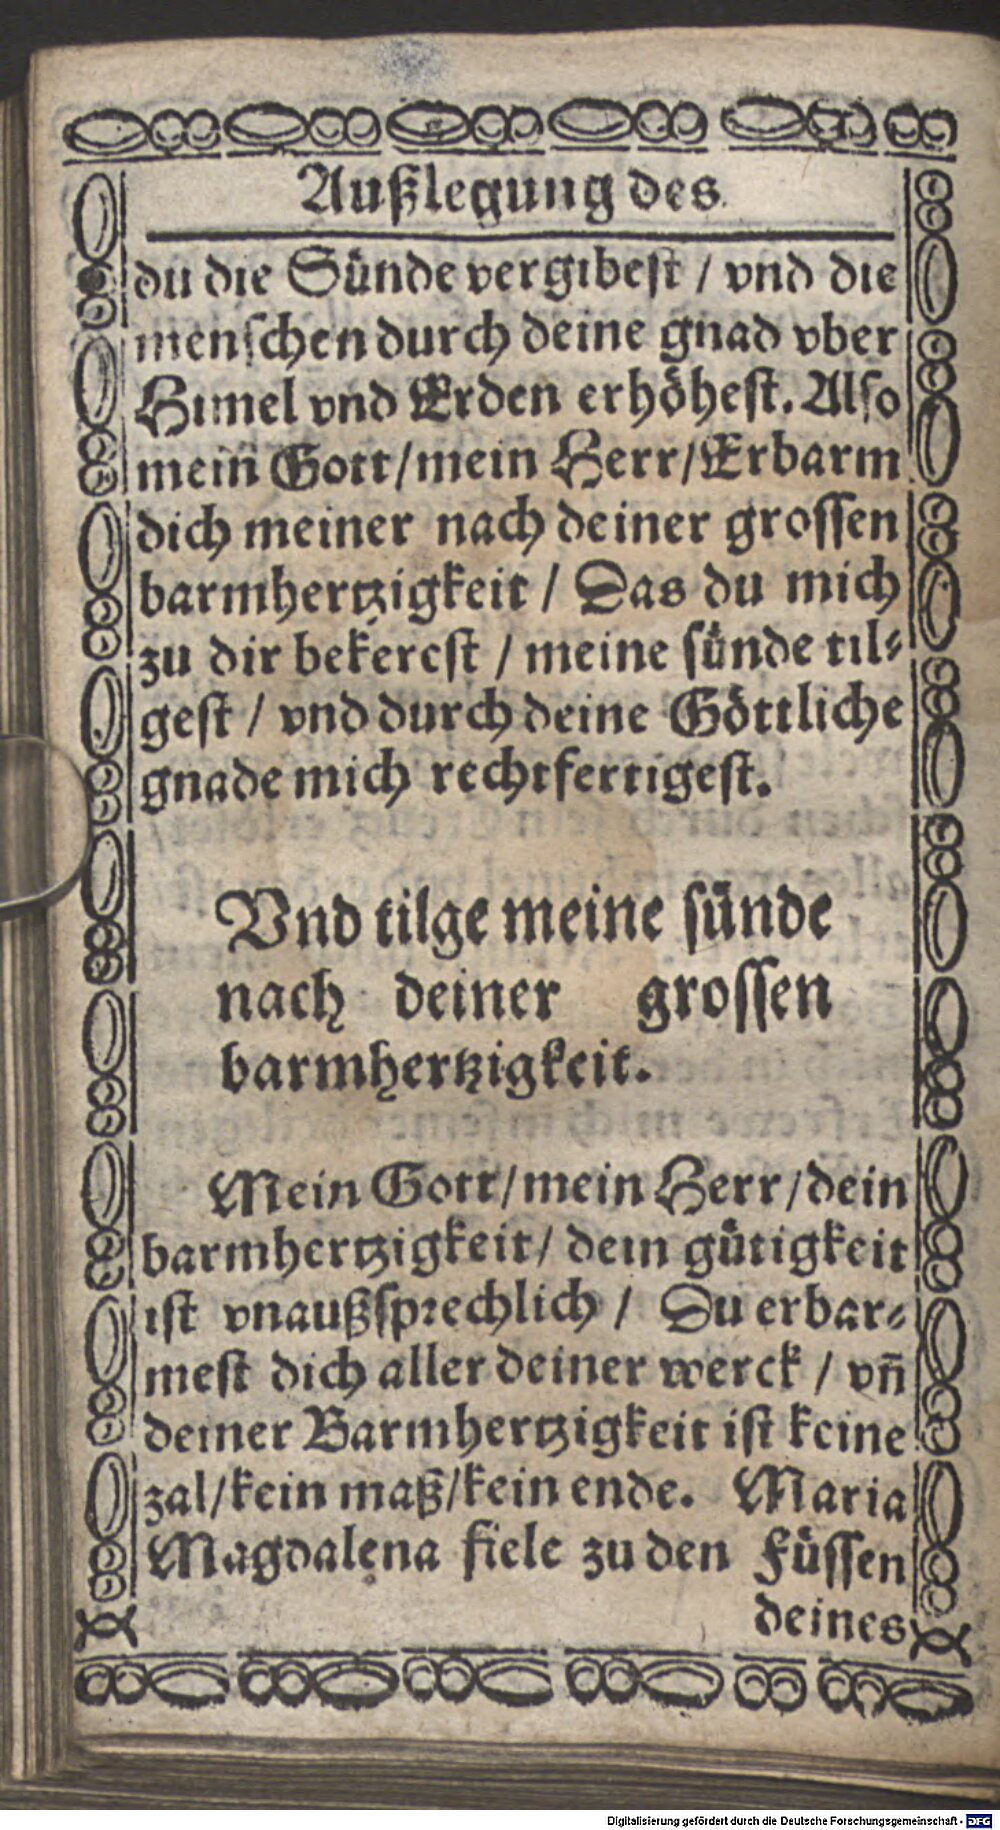 Außlegung des
du die Sünde vergibest / vnd die
menschen durch deine gnad vber
Himel vnd Erden erhöhest. Also
mein Gott / mein Herr / Erbarm
dich meiner nach deiner grossen
barmhertzigkeit / Das du mich
zu dir bekerest / meine sünde til⸗
gest / vnd durch deine Göttliche
gnade mich rechtfertigest.
Vnd tilge meine sünde
nach deiner grossen
barmhertzigkeit.
Mein Gott / mein Herr / dein
barmhertzigkeit / dein gütigkeit
ist vnaußsprechlich / Du erbar⸗
mest dich aller deiner werck / vn̄
deiner Barmhertzigkeit ist keine
zal / kein maß / kein ende. Maria
Magdalena fiele zu den Füssen
deines
Digitalisierung gefördert durch die Deutsche Forschungsgemeinschaft - DFG